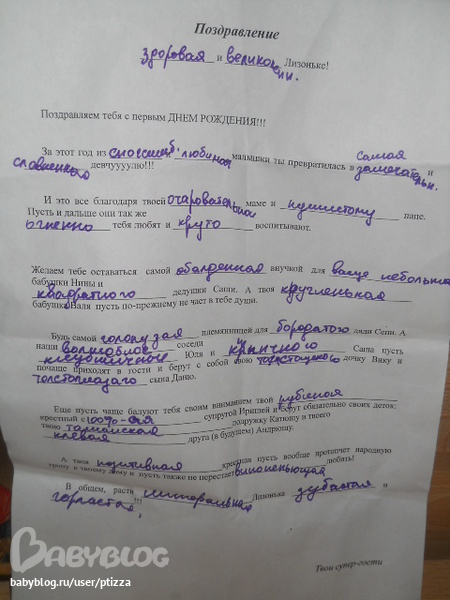 Поздравление
здоровая и великолепн. Лизоньке!
Поздравляем тебя с первым ДНЕМ РОЖДЕНИЯ!!!
За этот год из и любимая малышки ты превратилась в самая и
замечательн. девчуууулю!!!
И это все благодаря твоей очаровательная маме и пушистому папе.
Пусть и дальше они так же
огненно тебя любят и круто воспитывают.
Желаем тебе оставаться самой обалденная внучкой для ваще небольша
бабушки Нины и
квадратного дедушки Саши. А твоя кругленькая
бабушка Валя пусть по-прежнему не чает в тебе души.
Будь самой голопузая племянницей для бородатого дяди Сепи. А
наши волшебное соседи
Юля и Саша пусть
почаще приходят в гости и берут с собой свою толстощекого дочку Вику и
толстопопаго сына Даню.
Еще пусть чаще балуют тебя своим вниманием твой
крестный с 100%-ая супругой Иришей и берут обязательно своих деток:
твою подружку Катюшу и твоего
клевая друга (в будущем) Андрюшу.
А твоя позитивная крестная пусть вообще протопчет народную
тропу к твоему дому и пусть также не перестает любить!
В общем, расти Лизонька зубастая и
горластая !!!
Твои супер-гости
BABYBLOG
babyblog.ru/user/ptizza